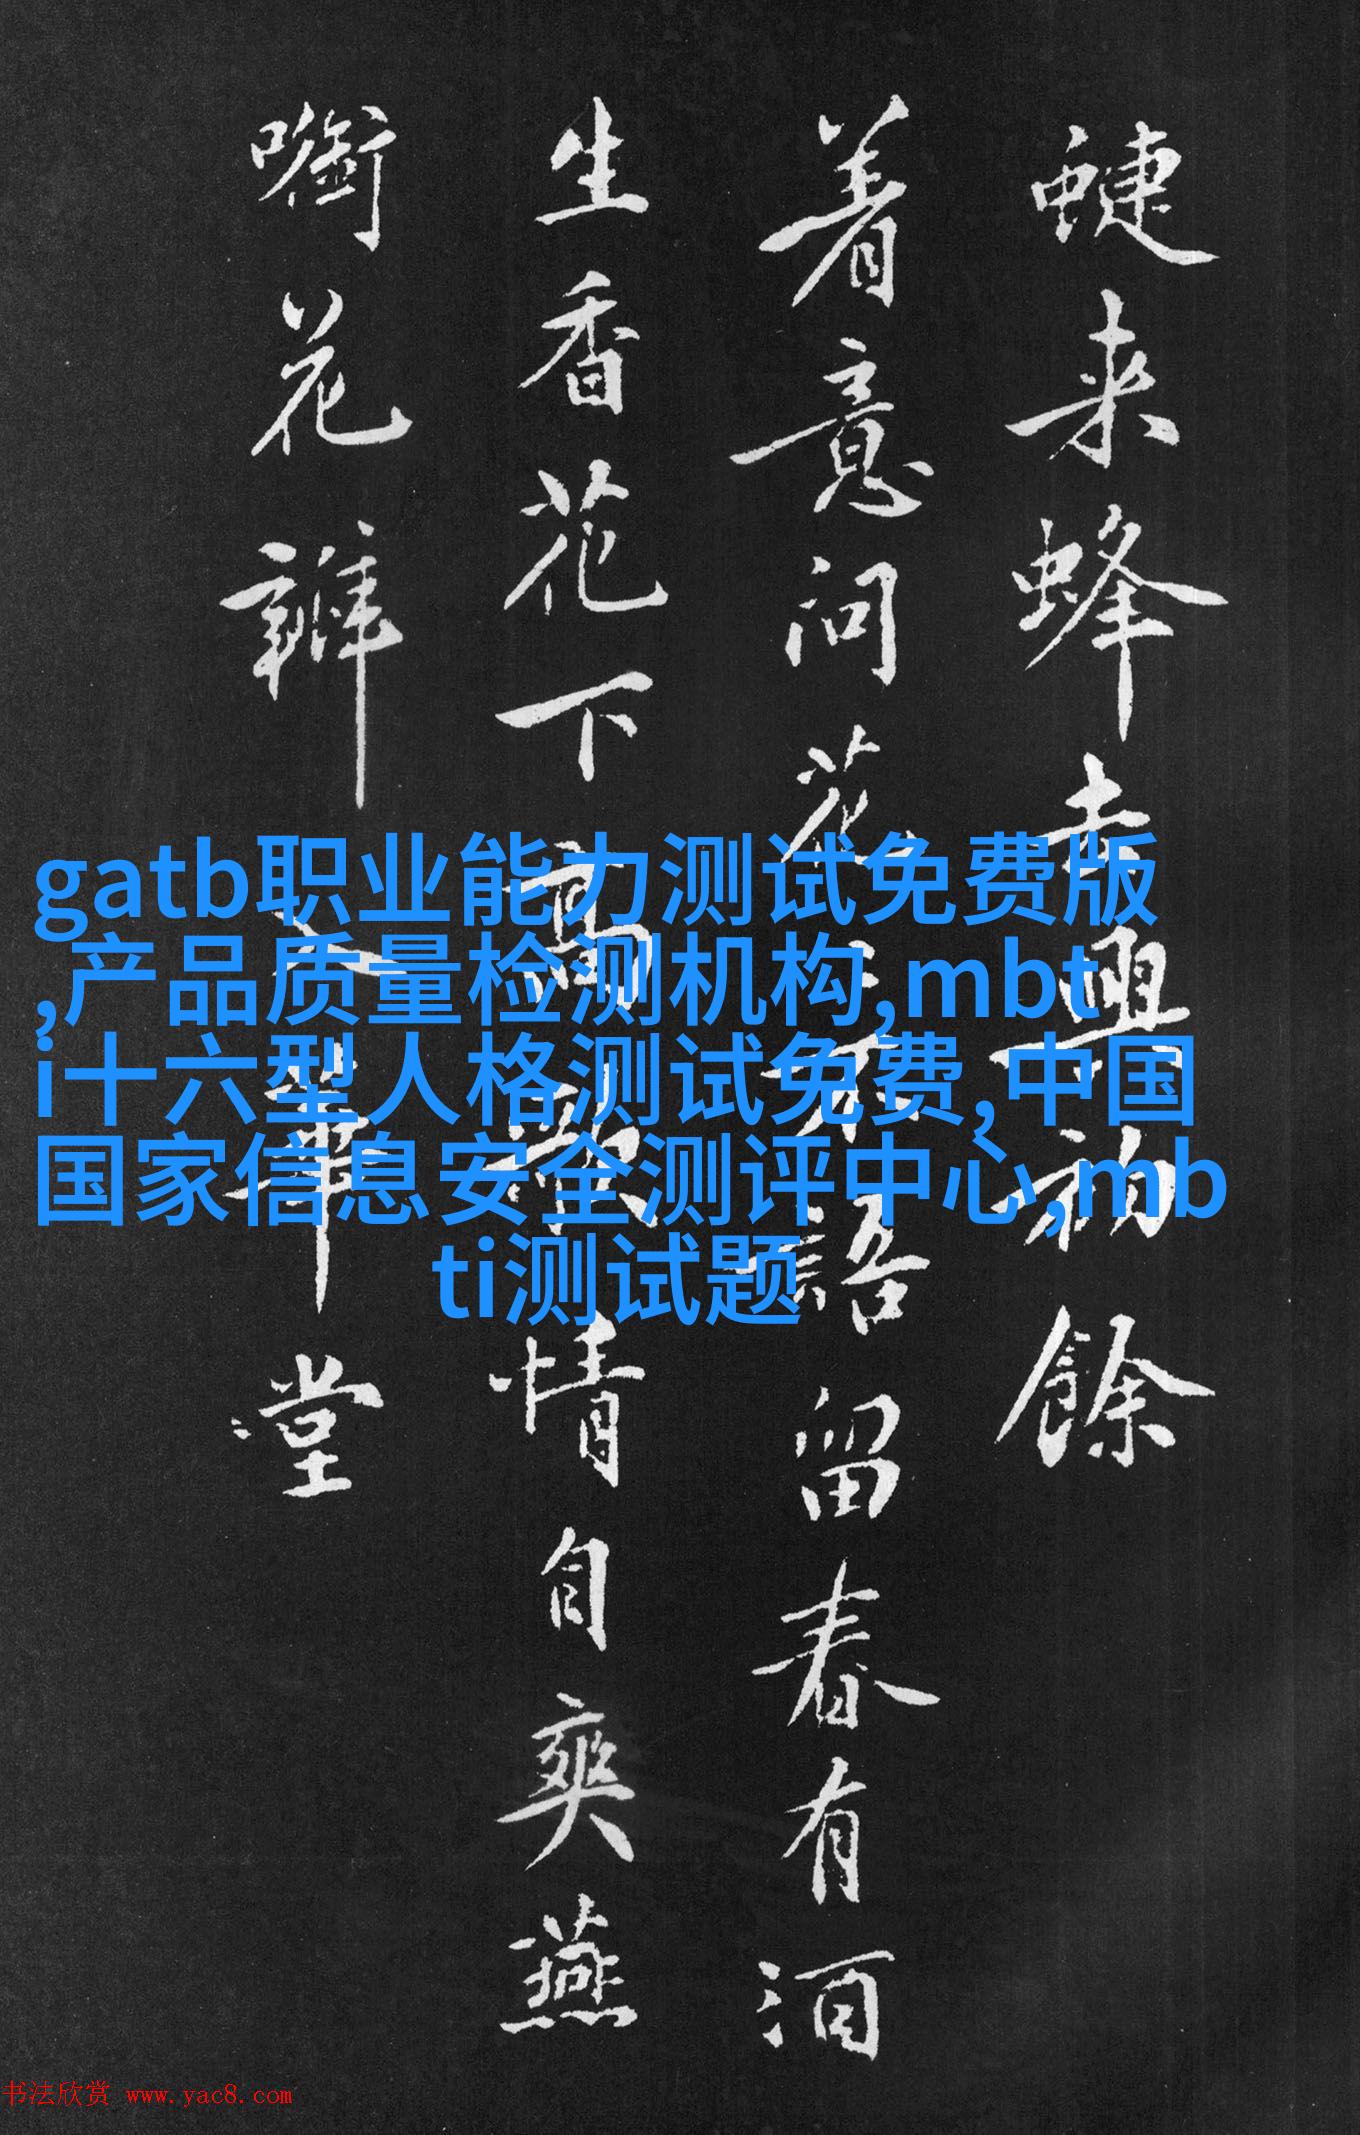 蜨来蜂去興初餘
着意问花不語留春有酒
生香花下高歌情自爽燕
花瓣入華堂
gatb职业能力测试免费版
,产品质量检测机构,mbt
i十六型人格测试免费,中国
国家信息安全测评中心,mb
ti测试题
书法欣赏 www.yac8.com